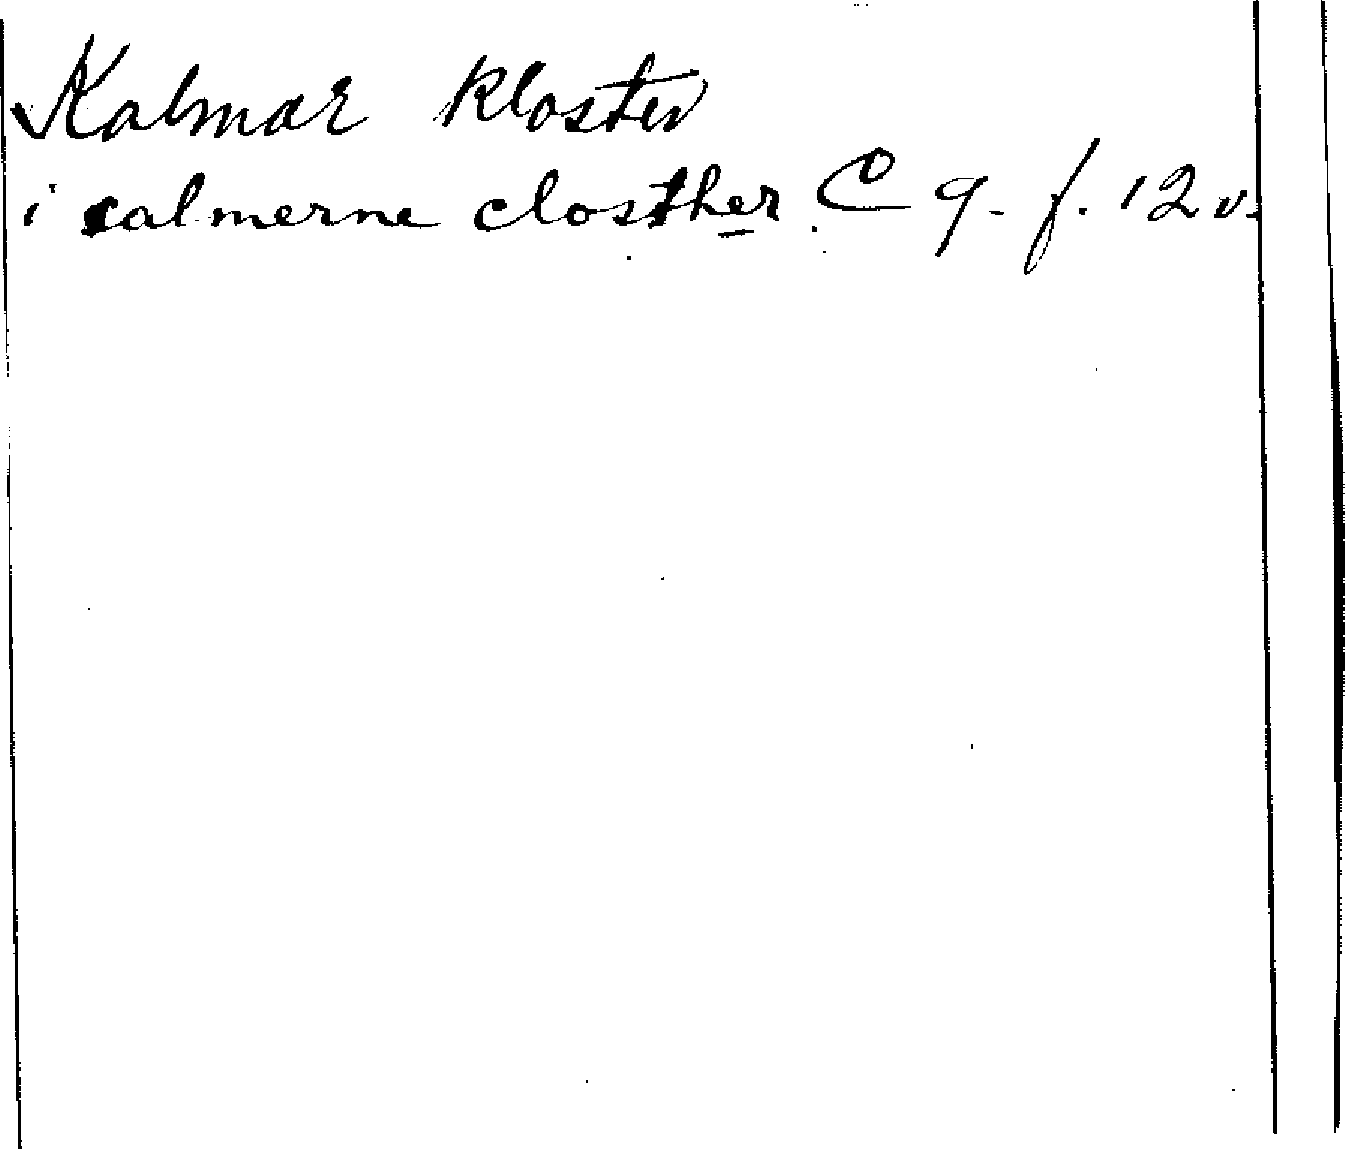 Kalmar kloster
i calmerne closther C 9. f. 12 v.